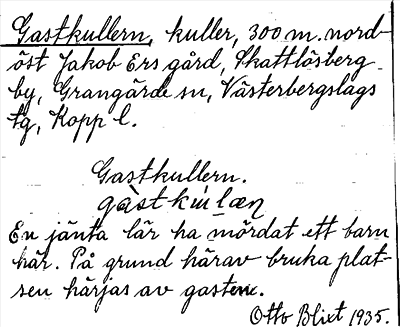 Gastkullern, kuller, 300 m. nord-
öst Jakob Ers gård, Skattlösberg
by, Grangärde sn, Västerbergslags
tg, Kopp l.
Gastkullern.
En jänta lär ha mördat ett barn
här. På grund härav bruka plat-
sen härjas av gasten.
Otto Blixt 1935.